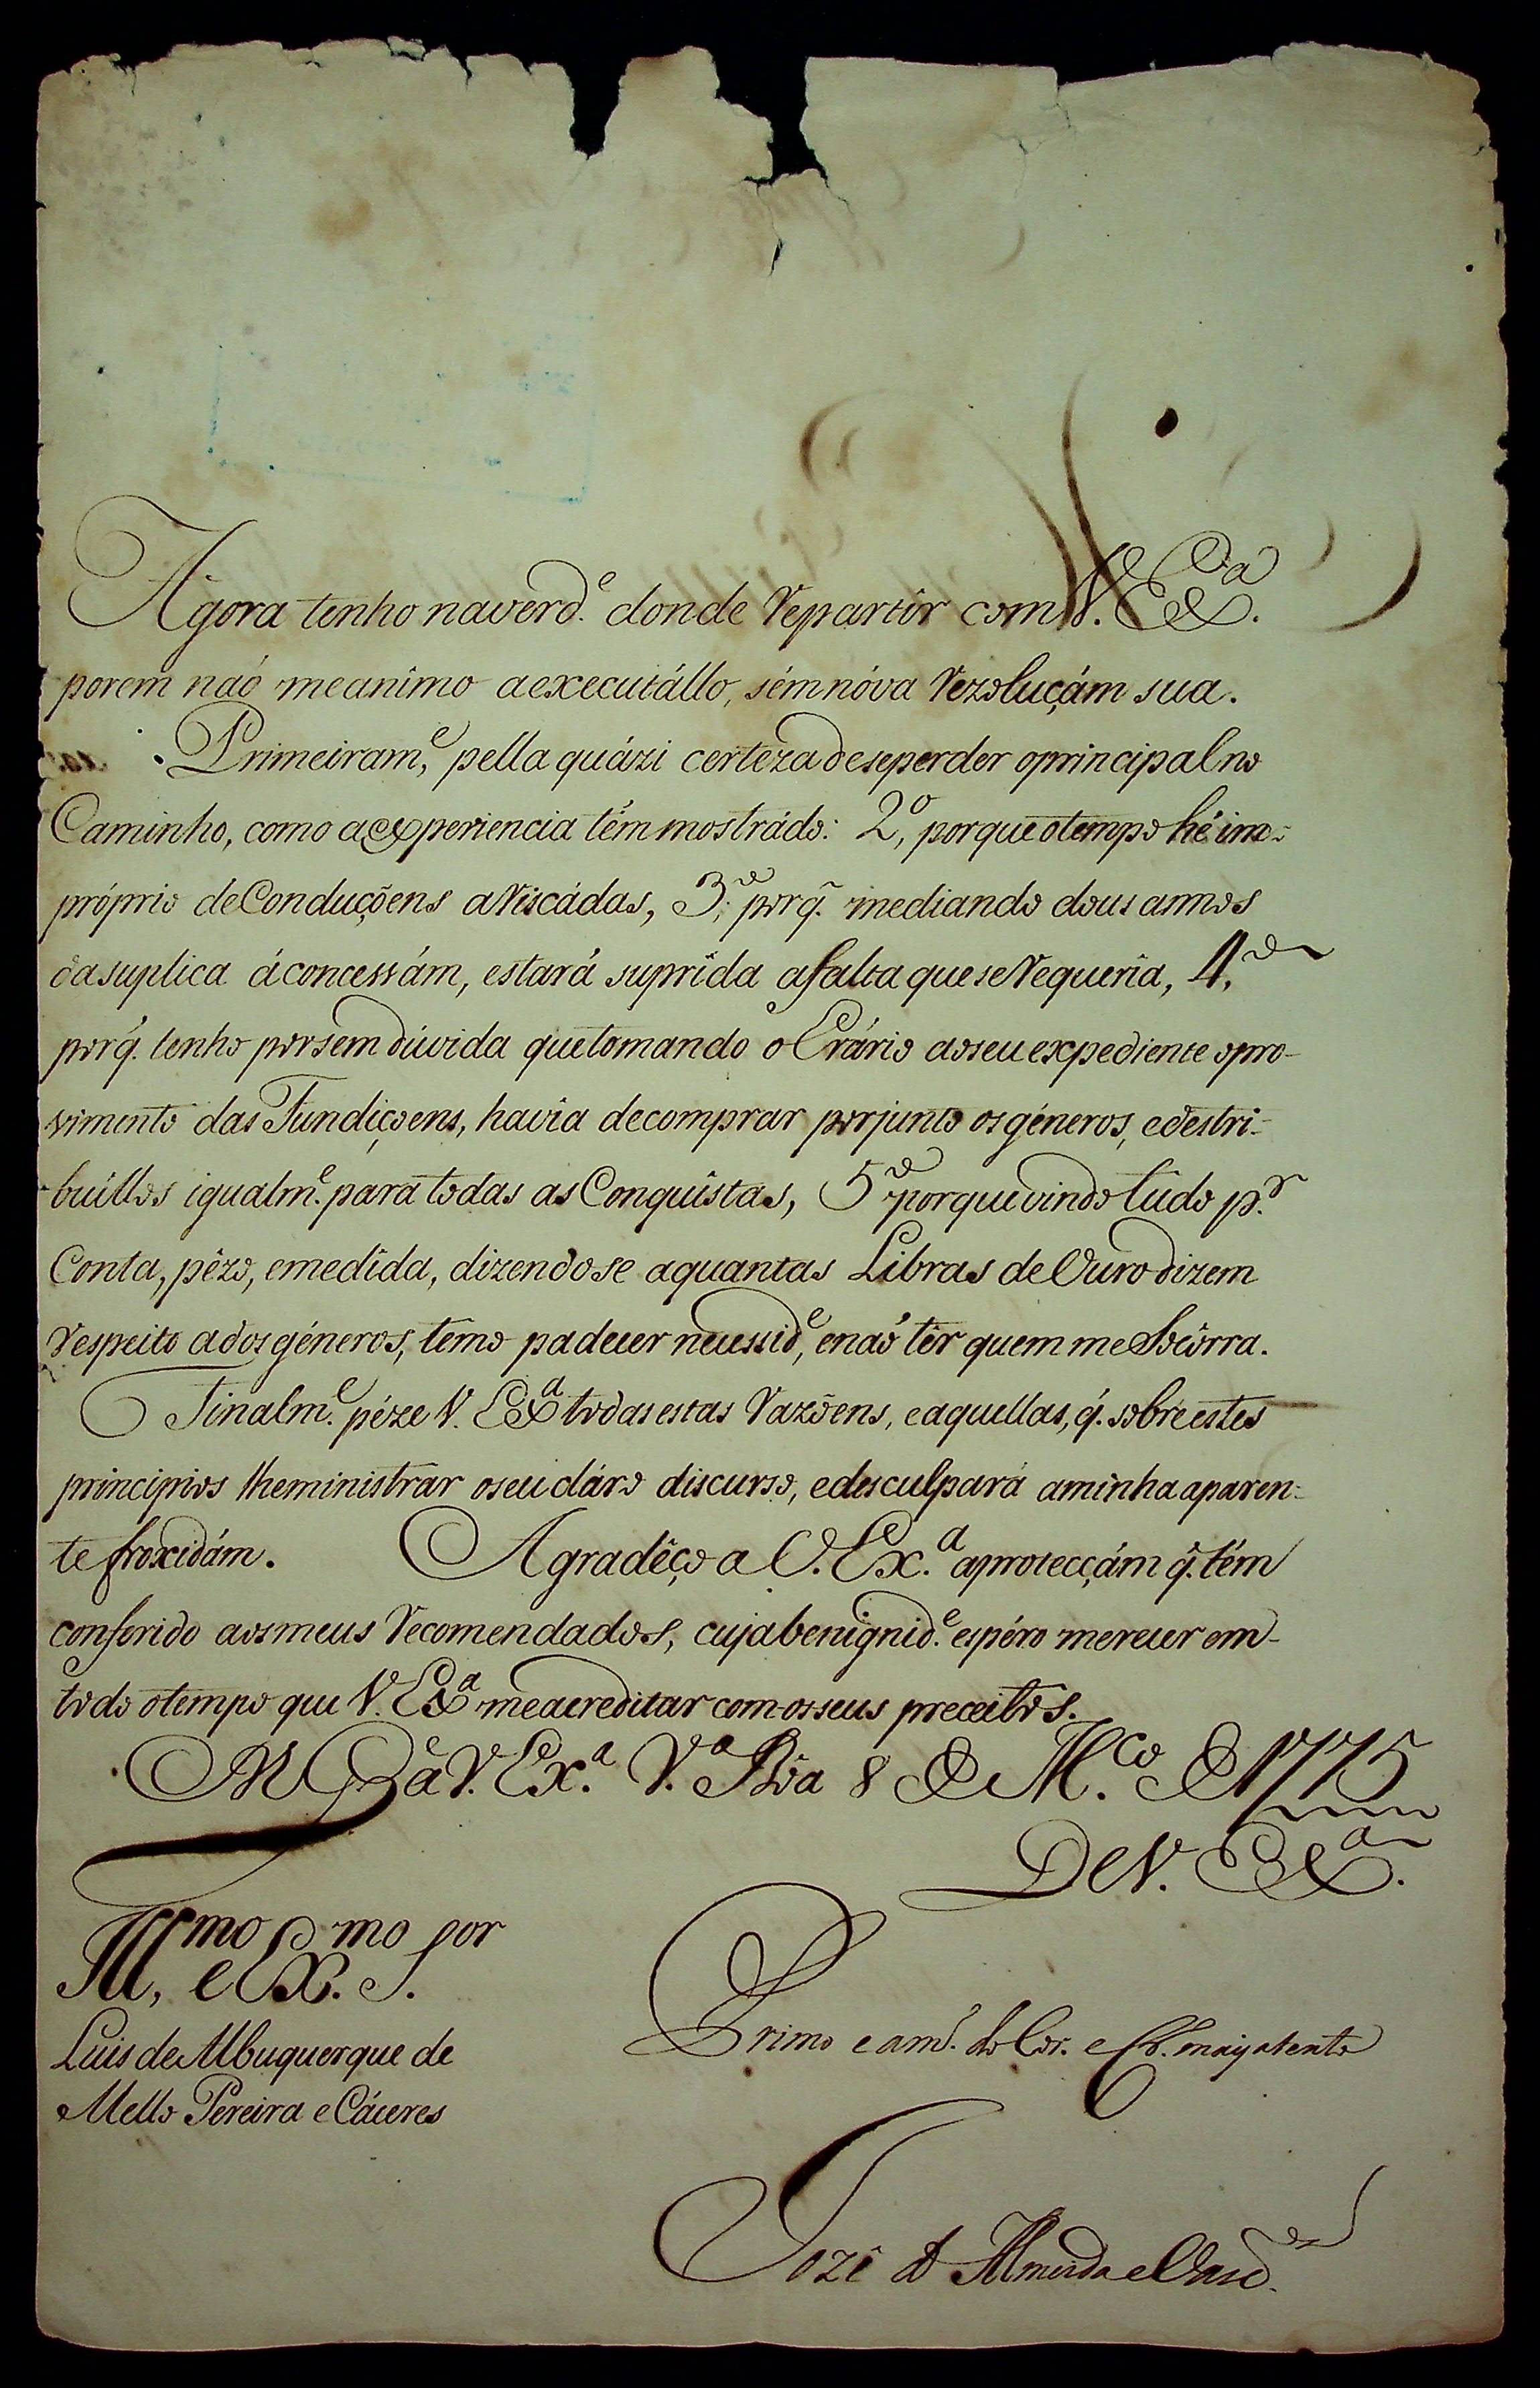 Agora tenho na verd.e donde repartîr com V. Exa.
porem naó me anîmo a executállo, sém nóva rezoluçám sua.
Primeiram.e, pella quázi certêza de se perder o principal no
Caminho, como a experiencia tém mostrádo: 2.o, porque o tempo hé im=
próprio de Conduçõens arriscádas, 3.o porq̃. mediando dous annos
da suplica á concessám, estará suprîda a falta que se requeria, 4.o
porq̃. tenho por sem dúvida que tomando o Erário a o seu expediente o pro-
vimento das Fundiçoens, havia de comprar por junto os géneros, e destri-
buîllos igualm.e para todas as Conquîstas, 5.o porque vindo tudo p.r
Conta, pêzo, e medîda, dizendo se a quantas Libras de Ouro dizem
respeito a dos géneros, têmo padecer necessid.e, e naó têr quem me Socôrra.
Finalm.e péze V. Exa todas estas razõens, e aquellas, q̃. sobre estes
principios lhe ministrár o seu cláro discurso, e desculpará a minha aparen=
te froxidám. Agradêço a V. Ex.a a protecçám q̃. tém
conferido aos meus recomendados, cuja benignid.e espéro merecer em-
todo o tempo que V. Exa me acreditar com os seus preceitos.
D.s G.e a V. Ex.a V.a Bôa 8 de M.co de 1775
De V. Exa.
Ill.mo, e Ex.mo S.or
Luis de Albuquerque de
Mello Pereira e Cáceres
Primo e am.o do Cor. e Cr. maiz atento
Jozê de Almeida e Vasc.os